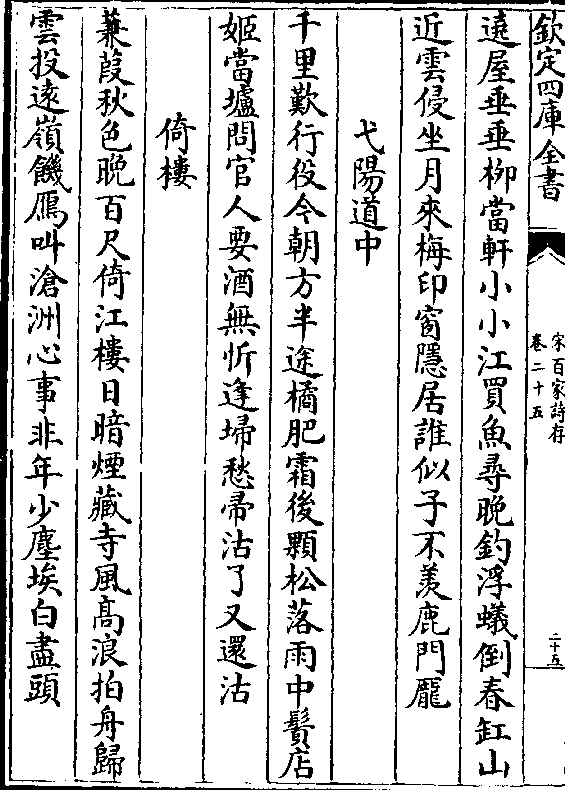 欽定四庫全書
宋百家詩存
卷二十五
二十五
遶屋垂垂柳當軒小小江買魚尋晚釣浮蟻倒春缸山
近雲侵坐月來梅印窗隱居誰似子不羨鹿門龎
弋陽道中
千里歎行役今朝方半途橘肥霜後顆松落雨中鬚店
姬當壚問官人要酒無忻逢埽愁帚沽了又還沽
倚樓
蒹葭秋色晚百尺倚江樓日暗煙藏寺風髙浪拍舟歸
雲投遠嶺饑鴈叫滄洲心事非年少塵埃白盡頭